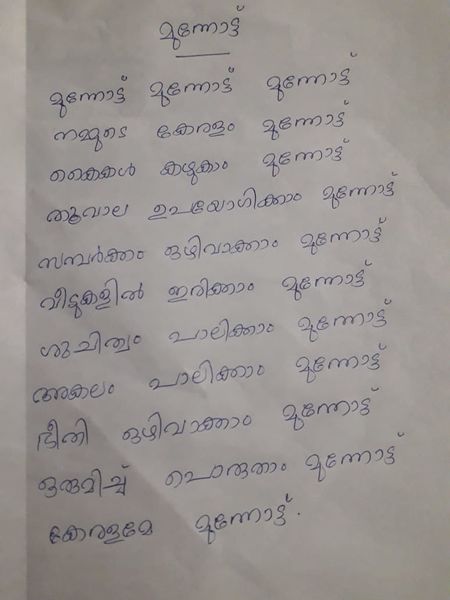 മുന്നോട്ട്
മുന്നോട്ട് മുന്നോട്ട് മുന്നോട്ട്
നമ്മുടെ കേരളം മുന്നോട്ട്
കൈകൾ കഴുകാം മുന്നോട്ട്
തൂവാല ഉപയോഗിക്കാം മുന്നോട്ട്
സമ്പർക്കം ഒഴിവാക്കാം മുന്നോട്ട്
വീടുകളിൽ ഇരിക്കാം മുന്നോട്ട്
ശുചിത്വം പാലിക്കാം മുന്നോട്ട്
അകലം പാലിക്കാം മുന്നോട്ട്
ഭീതി ഒഴിവാക്കാം മുന്നോട്ട്
ഒരുമിച്ച് പൊരുതാം മുന്നോട്ട്
കേരളമേ മുന്നോട്ട്.